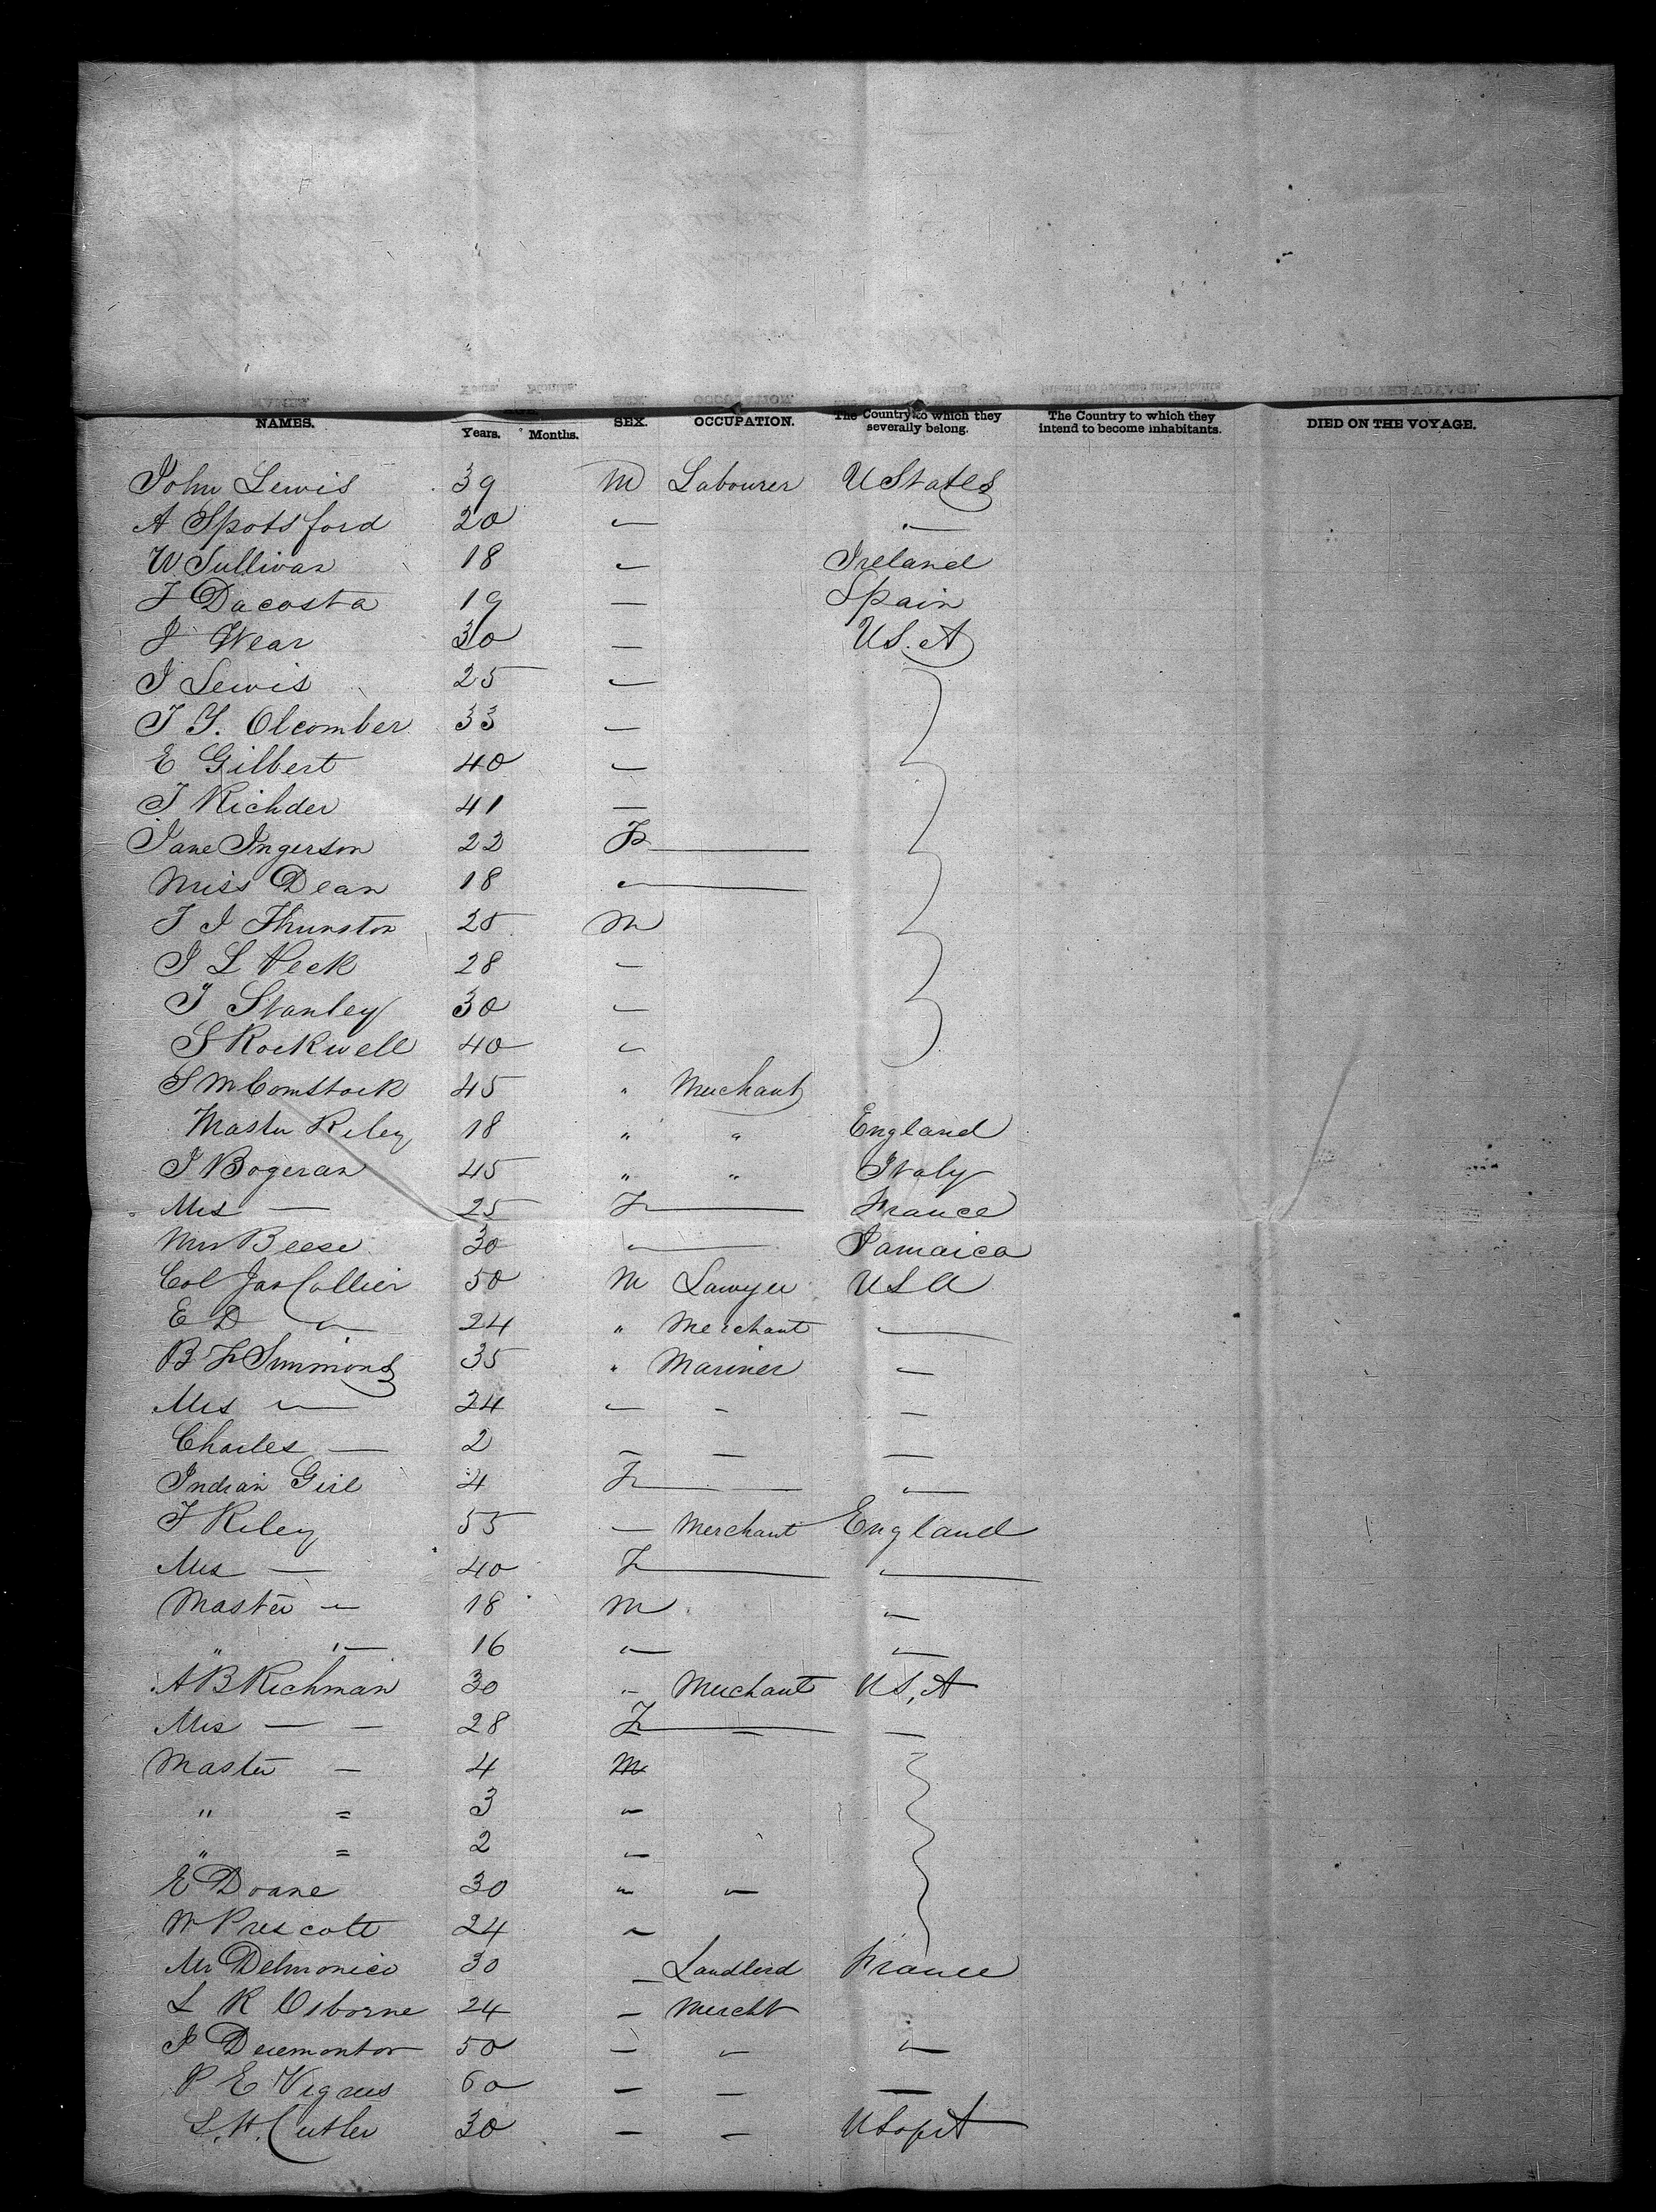 NAMES. Years. Months. SEX. OCCUPATION. The Country to which they severally belong. The Country to which they intend to become inhabitants. DIED ON THE VOYAGE.
John Lewis 39 M Labourer UStates
A Spotsford 20 " "
W Sullivan 18 " Ireland
F Dacosta 19 — Spain
J Wear 30 — US.A
J Lewis 25 "
T G. Olcomber 33 —
E Gilbert 40 —
T Richder 41 —
Jane Ingerson 22 F
Miss Dean 18 "
T J Thurston 25 M
J L Peck 28 —
J Stanley 30 —
S Rockwell 40 "
S M Comstock 45 " Merchant
Master Riley 18 " " England
J Bogeran 45 " " Italy
Mrs — 25 F France
Mrs Beese 30 " Jamaica
Col Jas Collier 50 M Lawyer USA
E D " 24 " Merchant —
B F Simmons 35 " Mariner —
Mrs — 24 — - —
Charles — 2 — — —
Indian Girl 4 F —
F Riley 55 — Merchant England
Mrs — 40 F —
Master — 18 M —
" " 16 — —
A B Richman 30 - Merchant US,A
Mrs — — 28 F — —
Master — 4 M
" = 3 "
" = 2 "
E Doane 30 " "
W Prescott 24 "
Mr Delmonico 30 — Landlord France
L R Osborne 24 — Mercht "
J 50 — " "
P E 60 — — —
S. H. Cutler 30 — — US of A